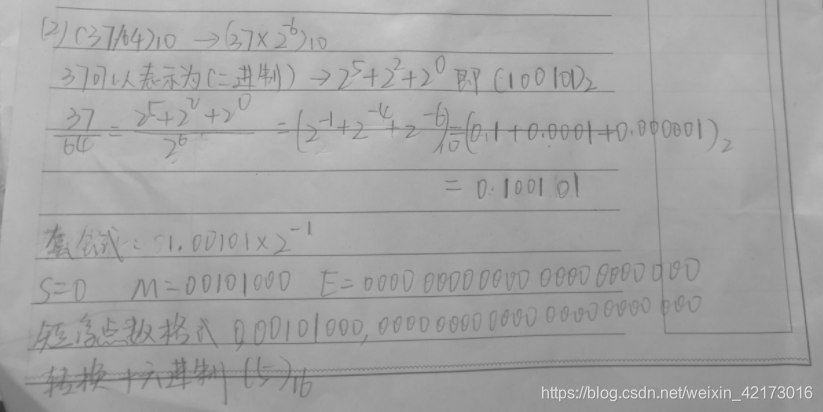 (2) (37/64)10 → (37×2^-6)10
37可以表示为(二进制) → 2^5+2^2+2^0 即 (100101)2
37/64 = (2^5+2^2+2^0)/2^6 = (2^-1+2^-4+2^-6)10 = (0.1+0.0001+0.000001)2
= 0.100101
套公式: 1.00101×2^-1
S=0 M=00101000 E=0000 00000000 0000 0000000
短浮点数格式 0,00101000,
转换十六进制 ( )16
https://blog.csdn.net/weixin_42173016